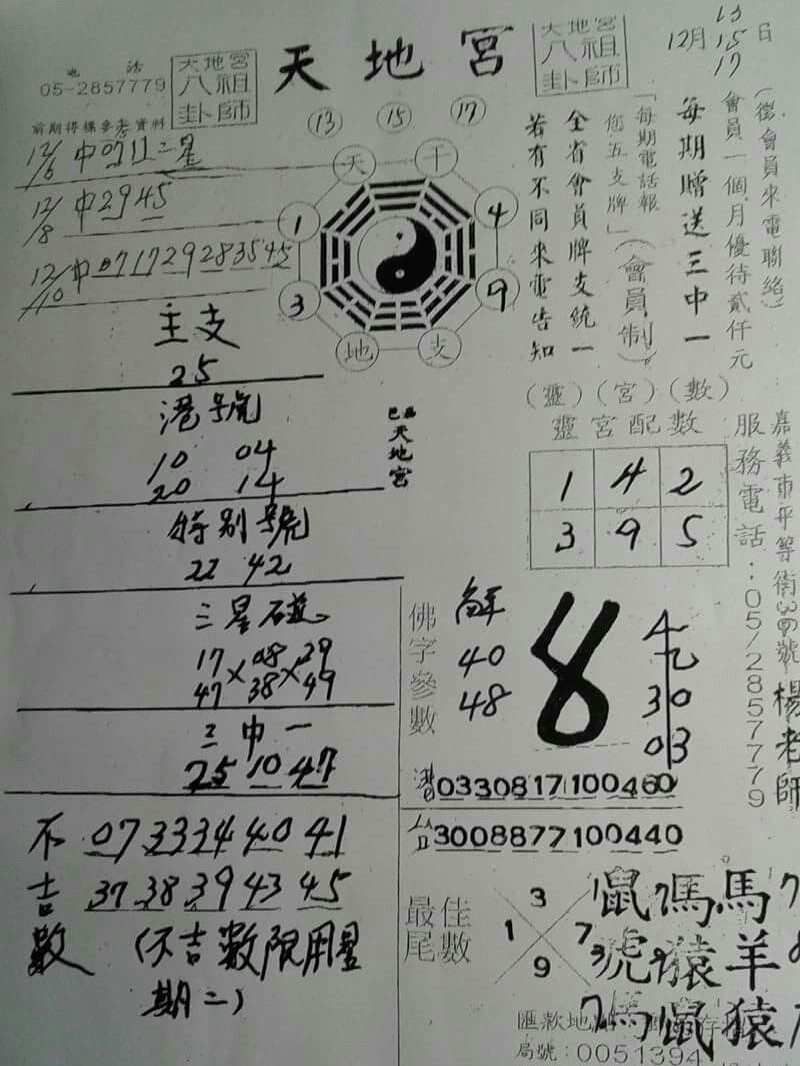 天地宮
電話
05-2857779
天地宮
八祖
卦師
天地宮
八祖
卦師
12月
13
15
17
日
前期得標參考資料
13 15 17
12/6 中 二星
12/8 中 29 45
12/10 中 07 17 29 28 35 45
天 干
1 4
3 9
地 支
(徵會員來電聯絡)
會員一個月優待貳仟元
每期贈送三中一
「每期電話報
您五支牌」(會員制)
全省會員牌支統一
若有不同來電告知
主支
25
港號
10 04
20 14
特別號
22 42
三星碰
17 × 08 × 29
47 38 49
三中一
25 10 47
天地宮
(靈)(宮)(數)
靈宮配數
1 4 2
3 9 5
服務電話:05/2857779
嘉義市平等街
號 楊老師
佛字參數
解
40
48
8
30
03
港 03 30 81 71 00 46 0
台 30 08 87 71 00 44 0
不吉數
07 33 34 40 41
37 38 39 43 45
(不吉數限用星
期二)
最佳
尾數
3
1 7
9
鼠 馮 馬
虎 猿 羊
馮 鼠 猿
匯款地
局號:0051394